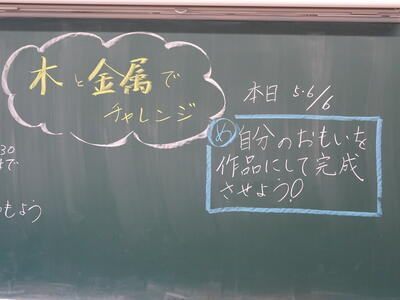 木と金属で
チャレンジ
本日 5・6/6
め 自分のおもいを
作品にして完成
させよう!
30
まで
もよう